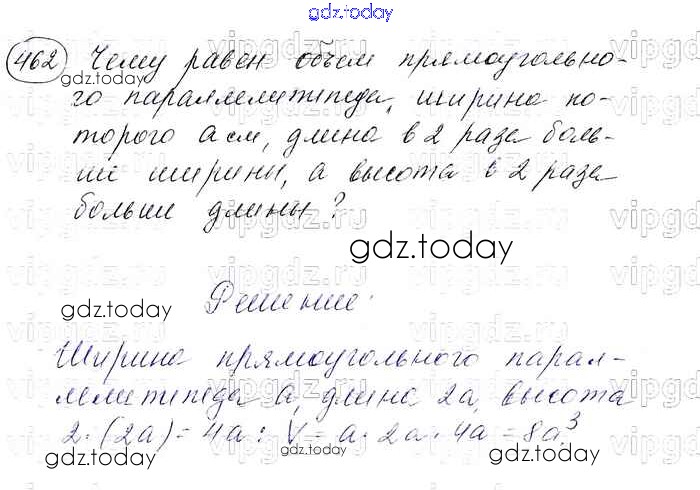 gdz.today
462 Чему равен объем прямоугольно-
го параллелипипеда, ширина ко-
торого a см, длина в 2 раза боль-
ше ширины, а высота в 2 раза
больше длины?
gdz.today
gdz.today
Решение:
Ширина прямоугольного парал-
лелипипеда a, длина 2a, высота
2·(2a)=4a: V=a·2a·4a=8a³
gdz.today
gdz.today
gdz.today